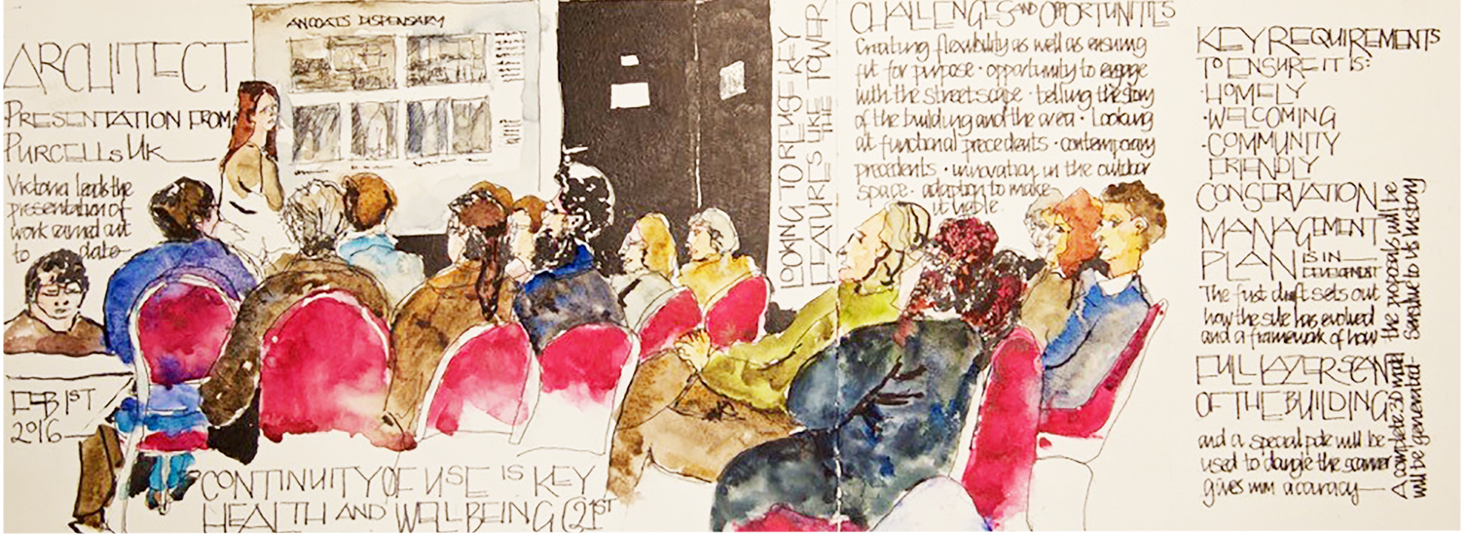 ARCHITECT
PRESENTATION FROM
PURCELLS UK
Victoria leads the
presentation of
work carried out
to date
FEB 1ST
2016
ANCOATS DISPENSARY
CONTINUITY OF USE IS KEY
HEALTH AND WELLBEING (21ST
LOOKING TO REUSE KEY
FEATURES LIKE THE TOWER
CHALLENGES AND OPPORTUNITIES
Creating flexibility as well as ensuring
fit for purpose · opportunity to engage
with the streetscape · telling the story
of the building and the area · Looking
at functional precedents · contemporary
precedents · innovation in the outdoor
space · adaption to make
it viable.
KEY REQUIREMENTS
TO ENSURE IT IS:
·HOMELY
·WELCOMING
·COMMUNITY
FRIENDLY
CONSERVATION
MANAGEMENT
PLAN IS IN
DEVELOPMENT
The first draft sets out
how the site has evolved
and a framework of how
the proposals will be
sensitive to its history
FULL LAZER SCAN
OF THE BUILDING
and a special pole will be
used to dangle the scanner
gives mm accuracy
A complete 3D model
will be generated